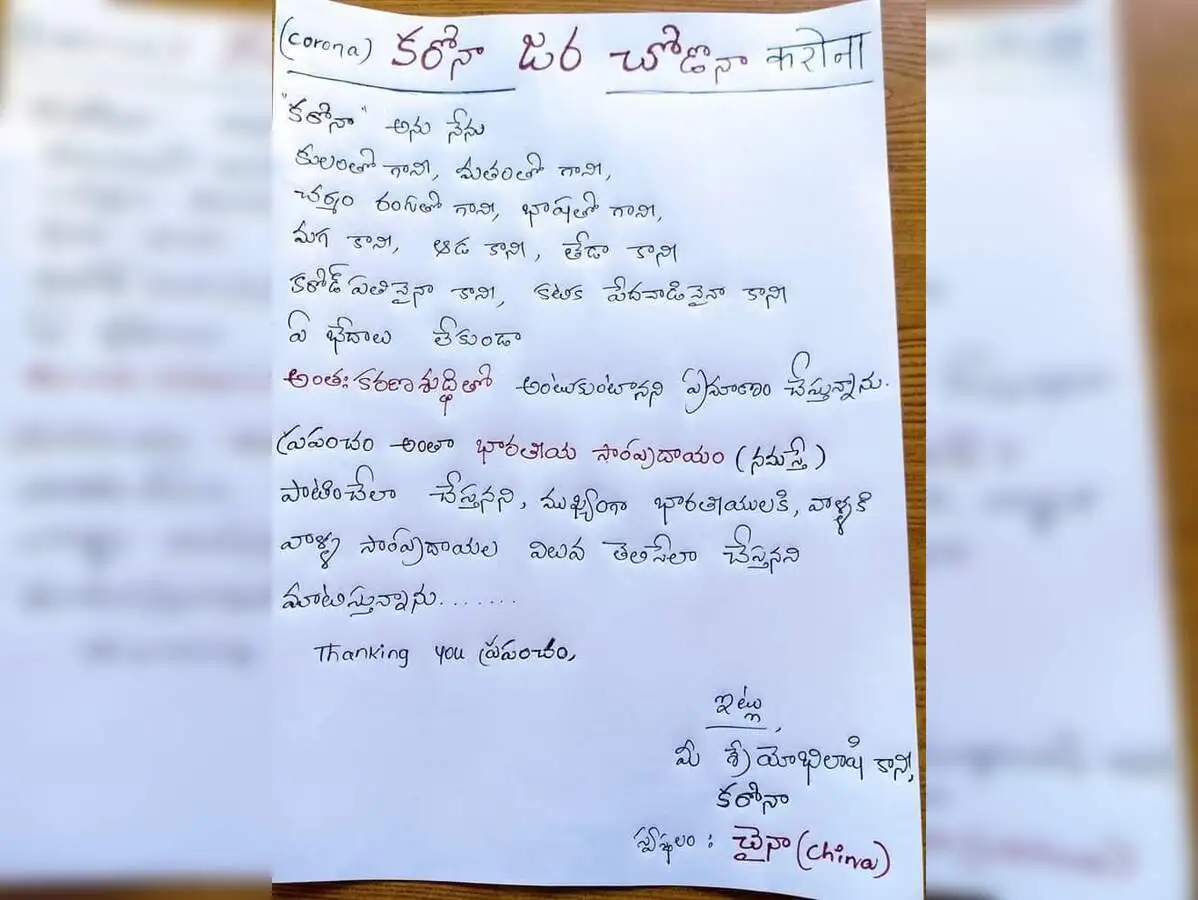 (corona) కరోనా జర చోణనా करोना
"కరోనా" అను నేను
కులంతో గాని, మతంతో గాని,
చర్మం రంగుతో గాని, భాషతో గాని,
మగ కాని, ఆడ కాని, తేడా కాని
కరోడ్ పతినైనా కాని, కటిక పేదవాడినైనా కాని
ఏ భేదాలు లేకుండా
అంతఃకరణశుద్ధితో అంటుకుంటానని ప్రమాణం చేస్తున్నాను.
ప్రపంచం అంతా భారతీయ సాంప్రదాయం (నమస్తే)
పాటించేలా చేస్తనని, ముఖ్యంగా భారతీయులకి, వాళ్ళకి
వాళ్ళ సాంప్రదాయల విలువ తెలిసేలా చేస్తనని
మాటిస్తున్నాను.......
Thanking you ప్రపంచం,
ఇట్లు,
మీ శ్రేయోభిలాషి కాని,
కరోనా
స్వస్థలం : చైనా (China)